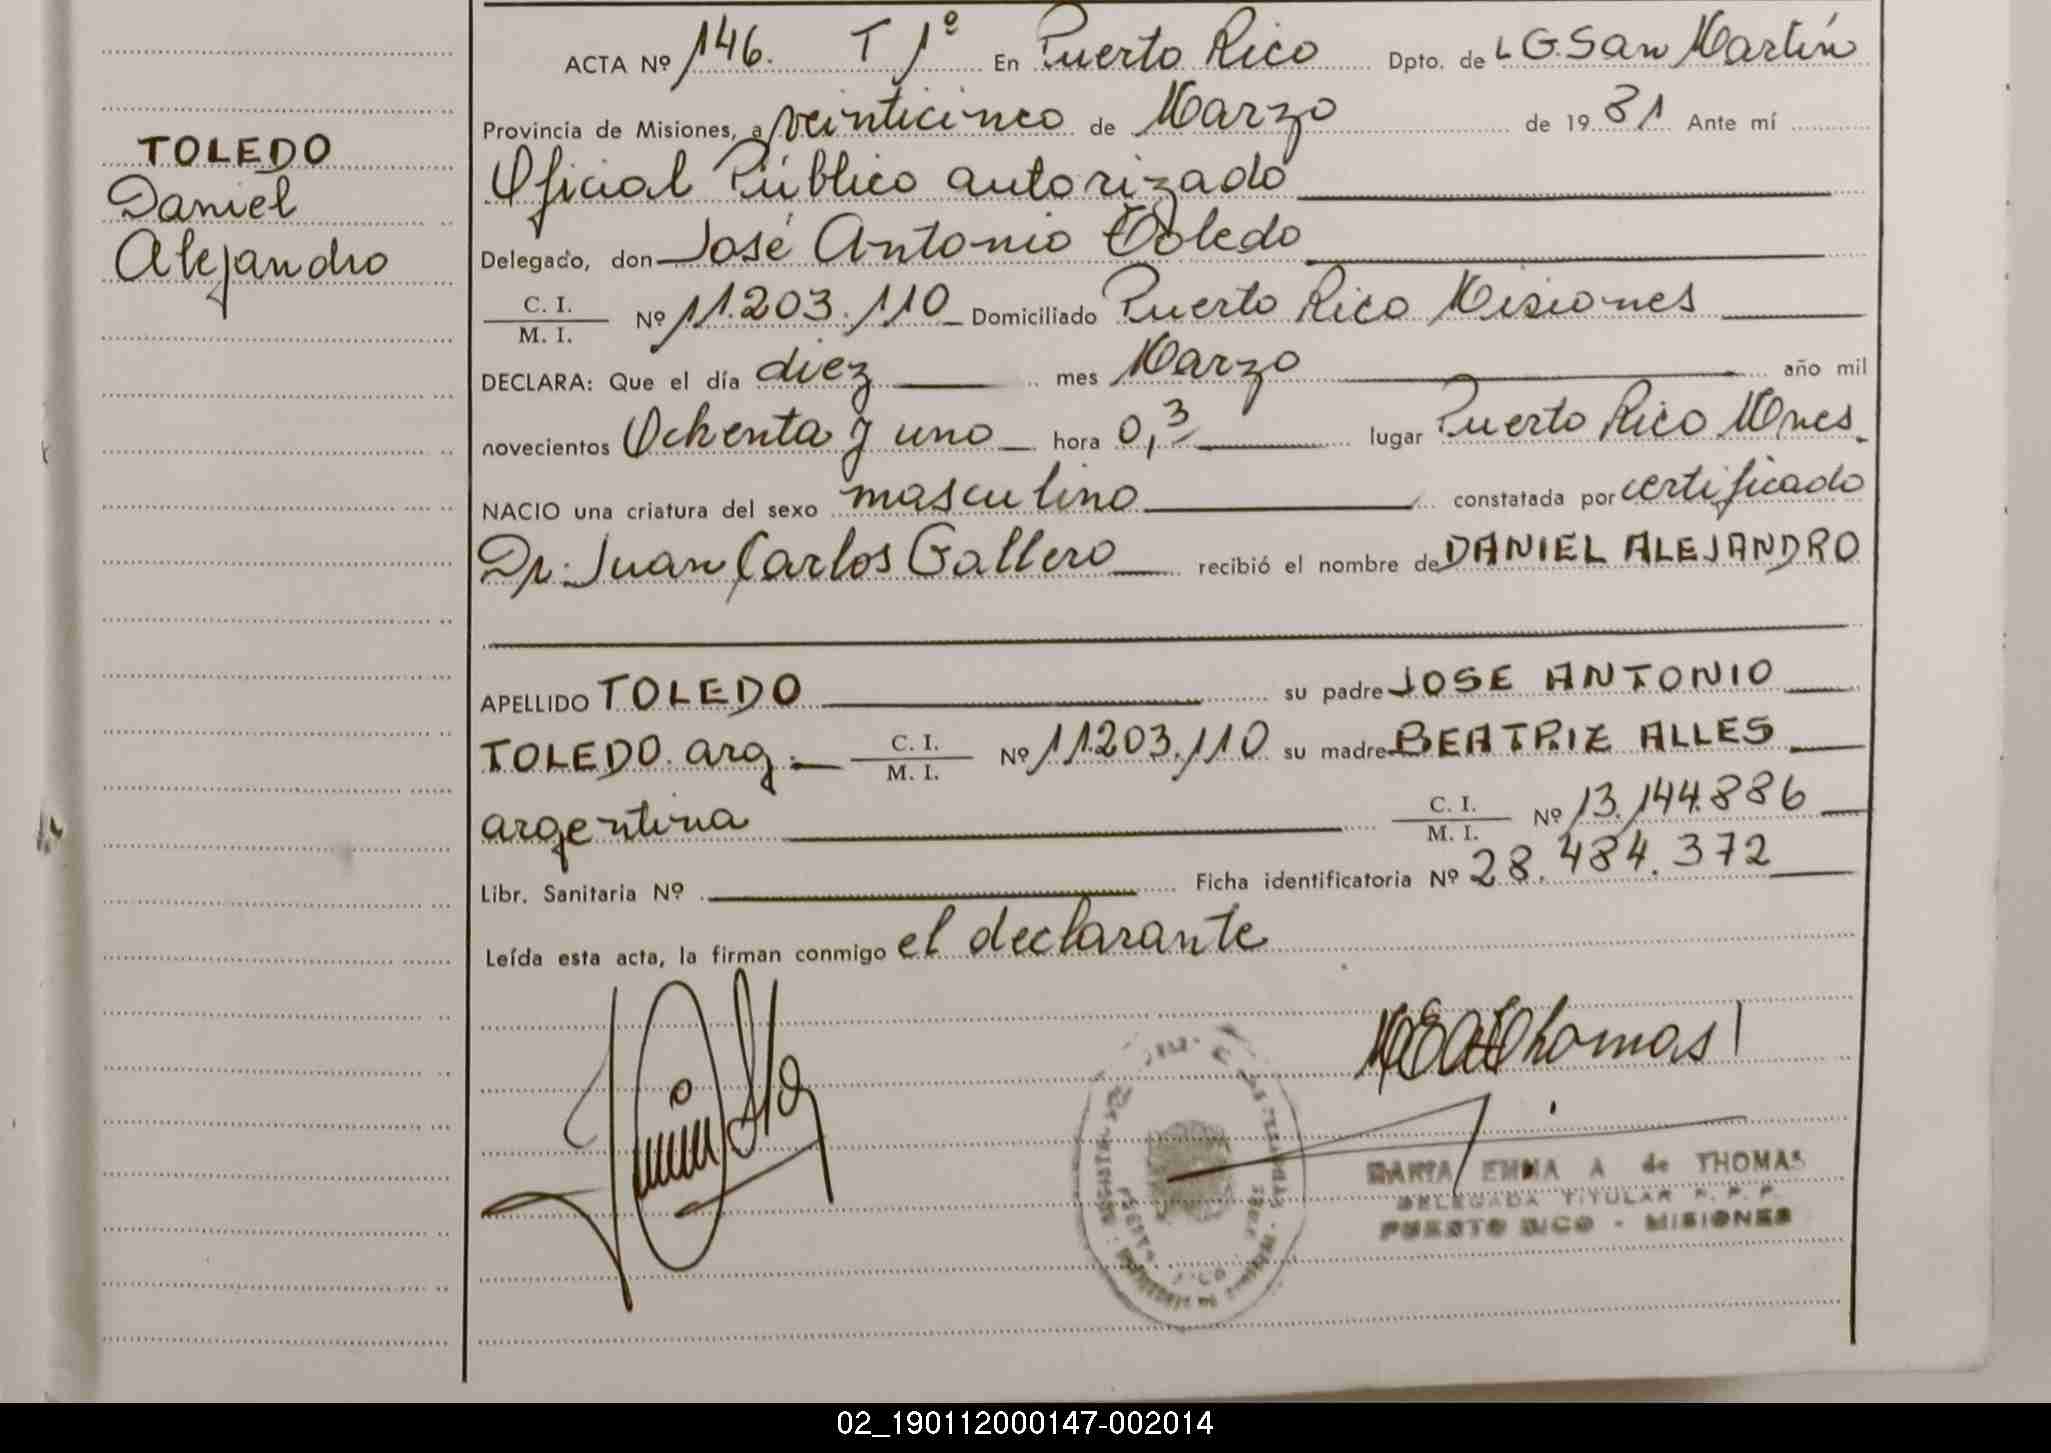 TOLEDO
Daniel
Alejandro
ACTA Nº 146. T 1º En Puerto Rico Dpto. de L G. San Martín
Provincia de Misiones, a veinticinco de Marzo de 19 81 Ante mí
Oficial Público autorizado
Delegado, don José Antonio Toledo
C. I.
M. I. Nº 11.203.110 Domiciliado Puerto Rico Misiones
DECLARA: Que el día diez mes Marzo año mil
novecientos Ochenta y uno hora 0,3 lugar Puerto Rico Mnes.
NACIO una criatura del sexo masculino constatada por certificado
Dr. Juan Carlos Gallero recibió el nombre de DANIEL ALEJANDRO
APELLIDO TOLEDO su padre JOSE ANTONIO
TOLEDO. arg. C. I. M. I. Nº 11.203.110 su madre BEATRIZ ALLES
argentina C. I. M. I. Nº 13.144.886
Libr. Sanitaria Nº Ficha identificatoria Nº 28.484.372
Leída esta acta, la firman conmigo el declarante
Thomas
MARIA EMMA A de THOMAS
DELEGADA TITULAR R. P. P.
PUERTO RICO - MISIONES
02_190112000147-002014